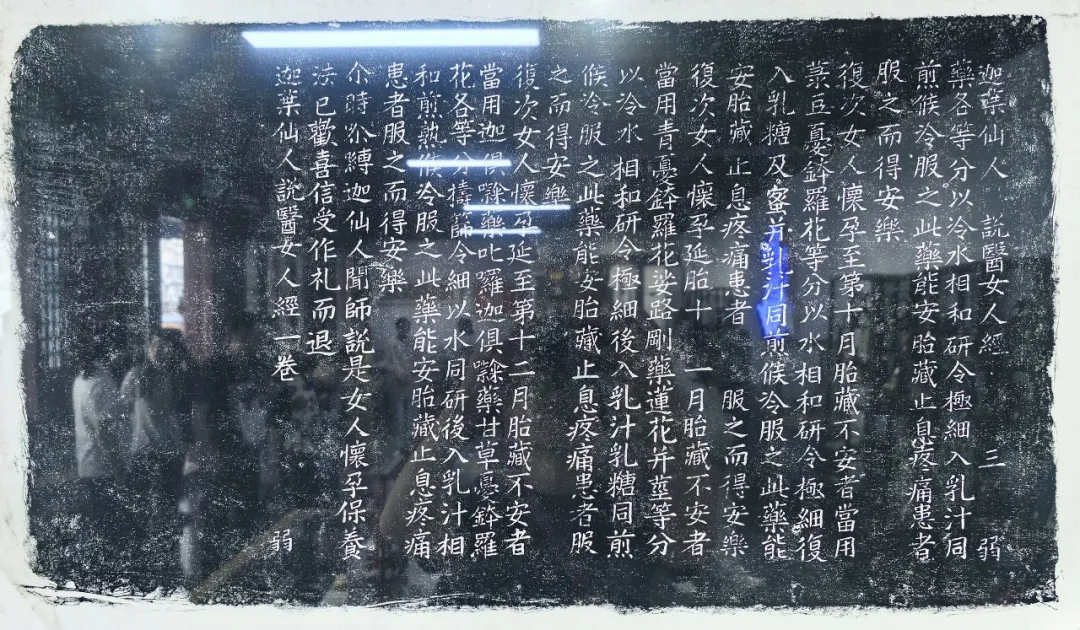 迦葉仙人 説醫女人經 三 弱
藥各等分以冷水相和研令極細入乳汁同
煎候冷服之此藥能安胎藏止息疼痛患者
服之而得安樂
復次女人懷孕至第十月胎藏不安者當用
蘃豆憂鉢羅花等分以水相和研令極細復
入乳糖及蜜并乳汁同煎候冷服之此藥能
安胎藏止息疼痛患者 服之而得安樂
復次女人懷孕延胎十一月胎藏不安者
當用青憂鉢羅花娑路剛藥蓮花并莖等分
以冷水相和研令極細後入乳汁乳糖同煎
候冷服之此藥能安胎藏止息疼痛患者服
之而得安樂
復次女人懷孕延至第十二月胎藏不安者
當用迦俱嚟藥叱羅迦俱嚟藥甘草憂鉢羅
花各等分擣篩令細以水同研後入乳汁相
和煎熟候冷服之此藥能安胎藏止息疼痛
患者服之而得安樂
尒時尒縛迦仙人聞師説是女人懷孕保養
法已歡喜信受作礼而退
迦葉仙人説醫女人經一卷 弱